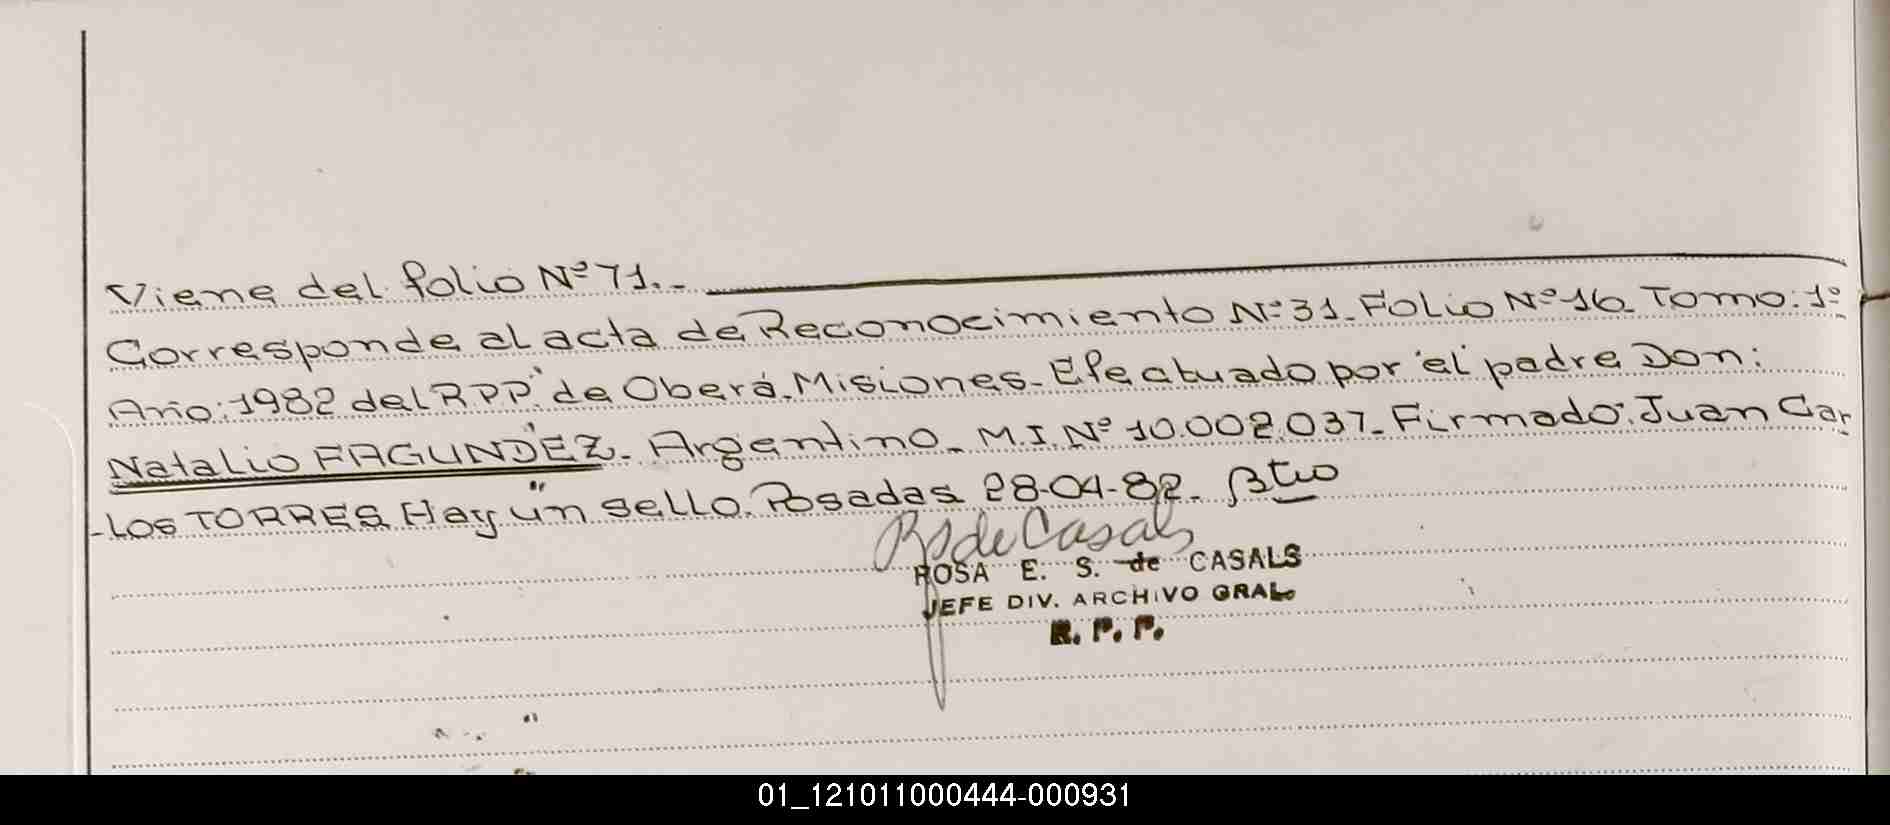 Viene del folio Nº 71.-
Corresponde al acta de Reconocimiento Nº 31. Folio Nº 16. Tomo: 1º
Año: 1982 del R.P.P. de Oberá. Misiones. Efectuado por el padre Don:
Natalio FAGUNDEZ. Argentino. M.I. Nº 10.002.037. Firmado: Juan Car
-los TORRES. Hay un sello. Posadas 28-04-82.
RS de Casals
ROSA E. S. de CASALS
JEFE DIV. ARCHIVO GRAL
R. P. P.
01_121011000444-000931